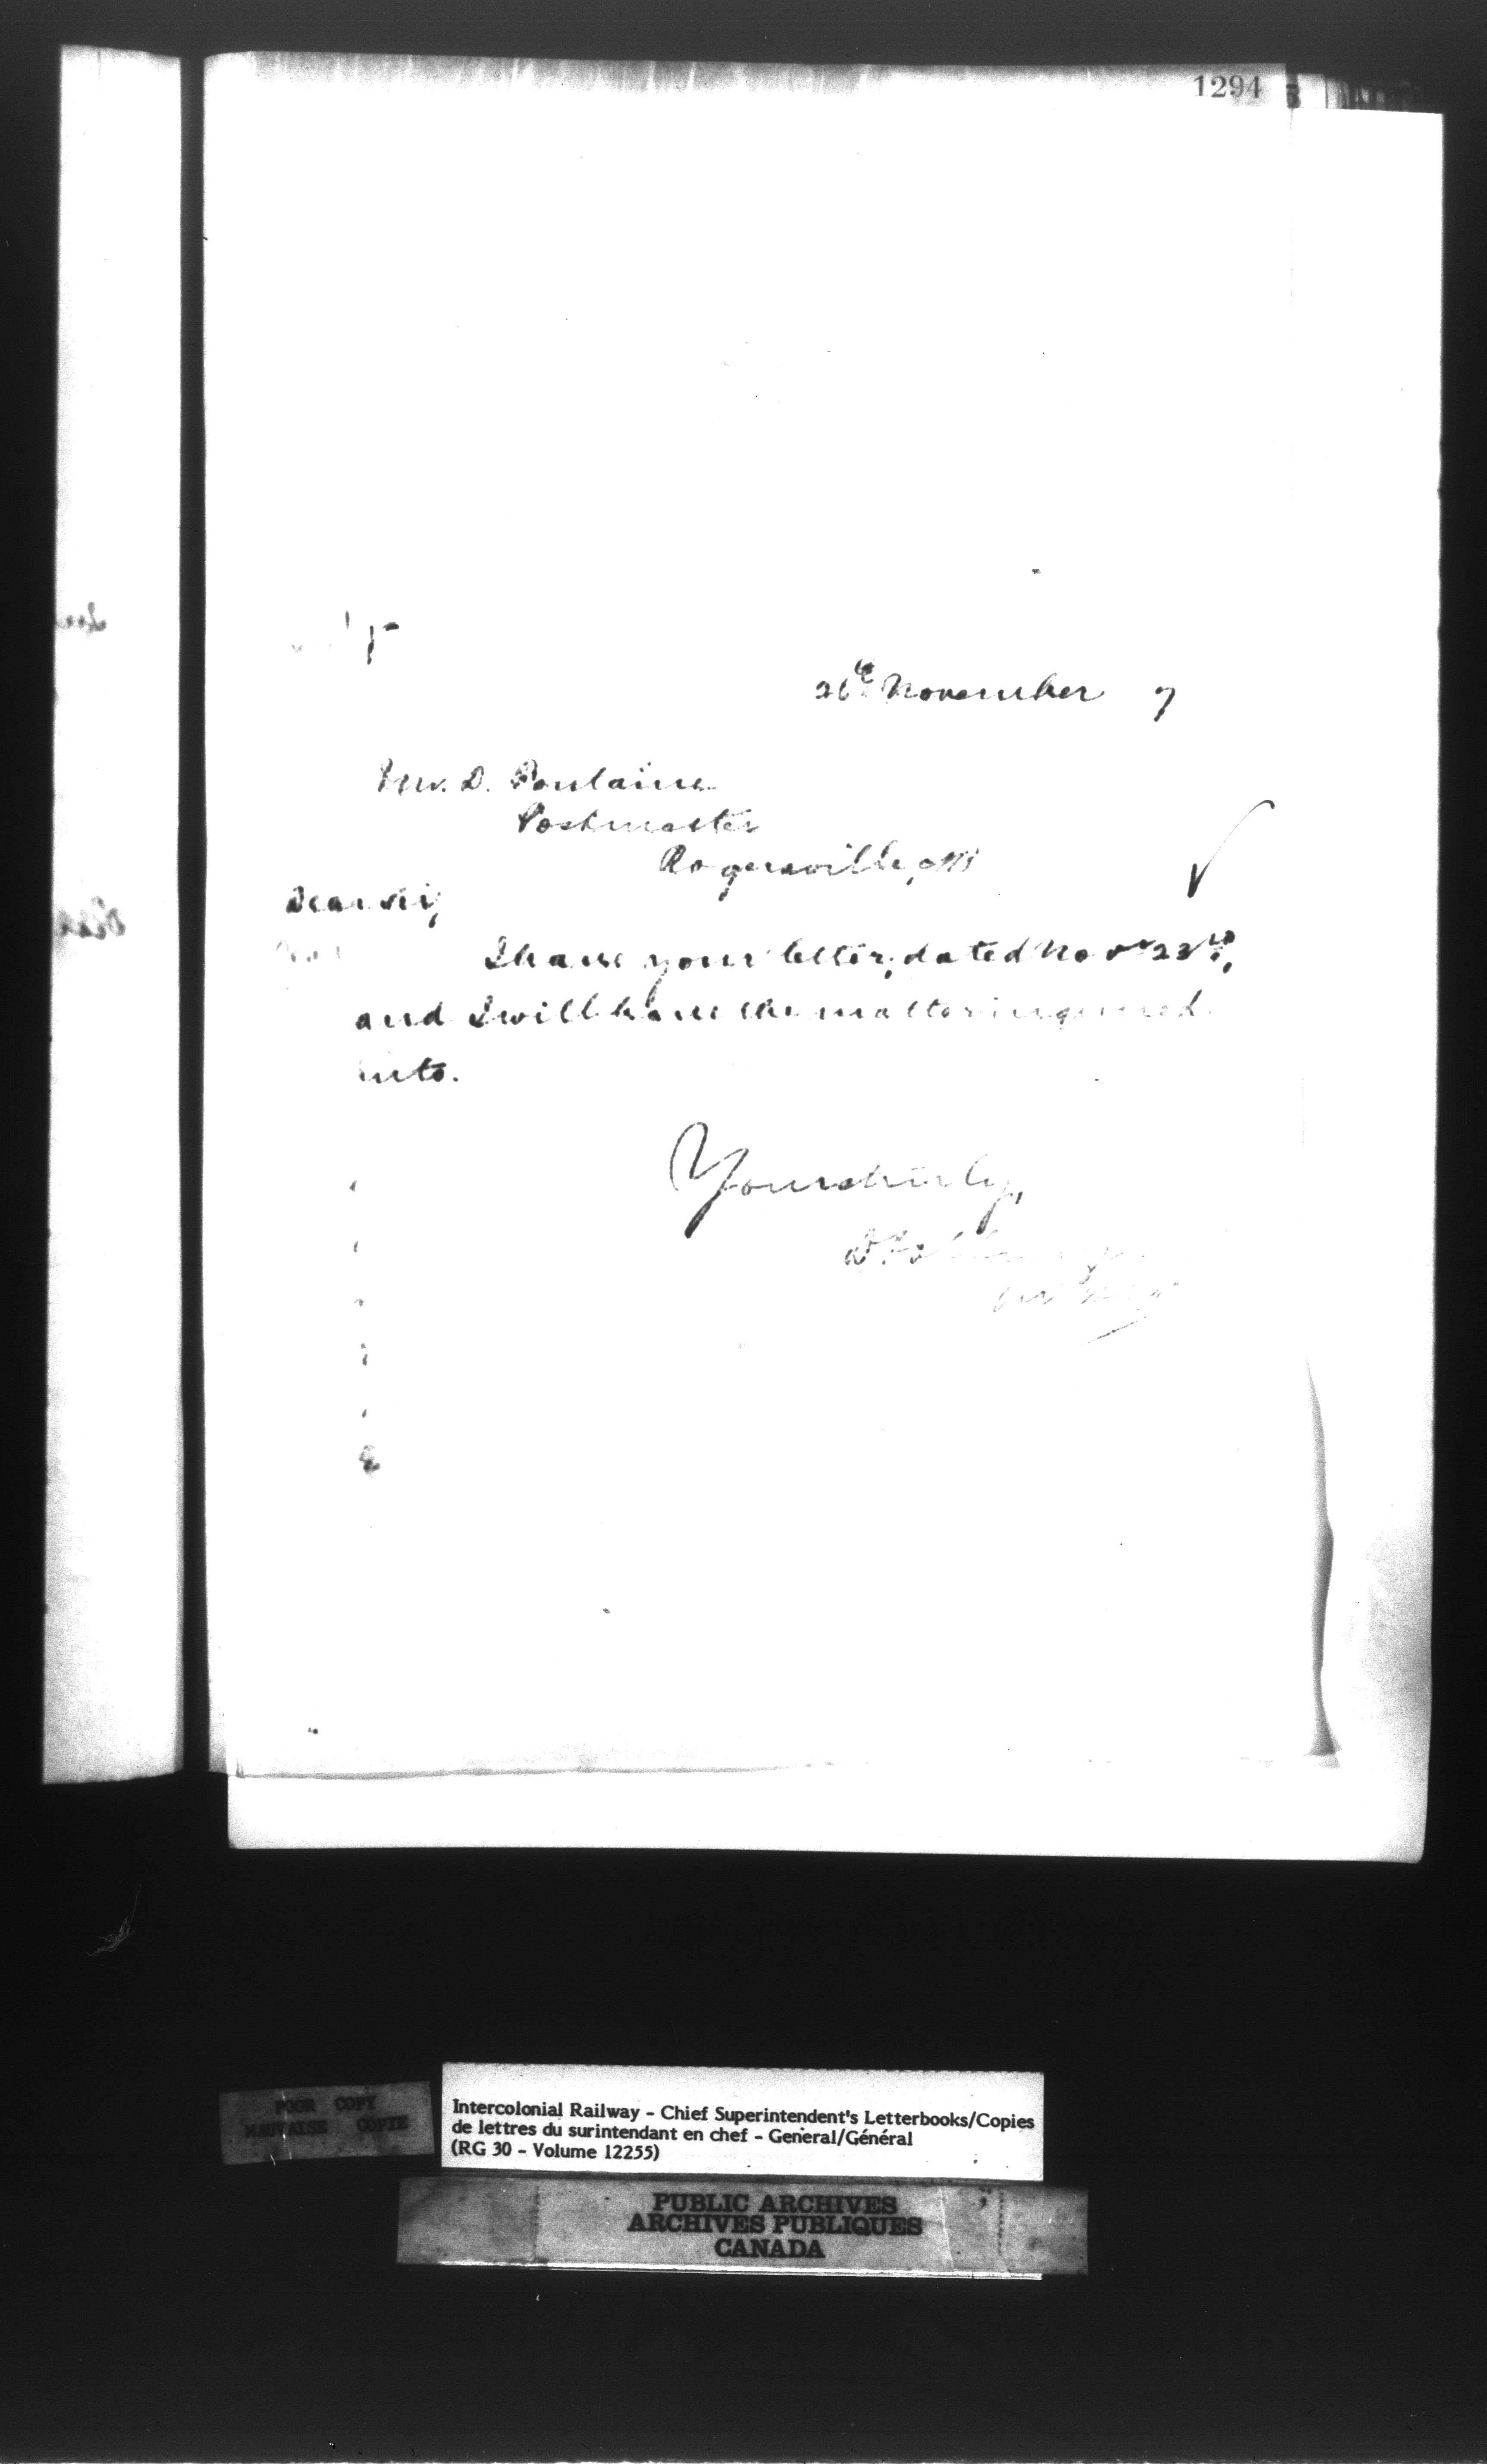 1294
26th November 7
Mr. D. Poulaine
Postmaster
Rogersville, NB
Dear Sir,
I have your letter, dated Novr 23rd,
and I will have the matter inquired
into.
Yours truly,
POOR COPY
MAUVAISE COPIE
Intercolonial Railway - Chief Superintendent's Letterbooks/Copies
de lettres du surintendant en chef - General/Général
(RG 30 - Volume 12255)
PUBLIC ARCHIVES
ARCHIVES PUBLIQUES
CANADA